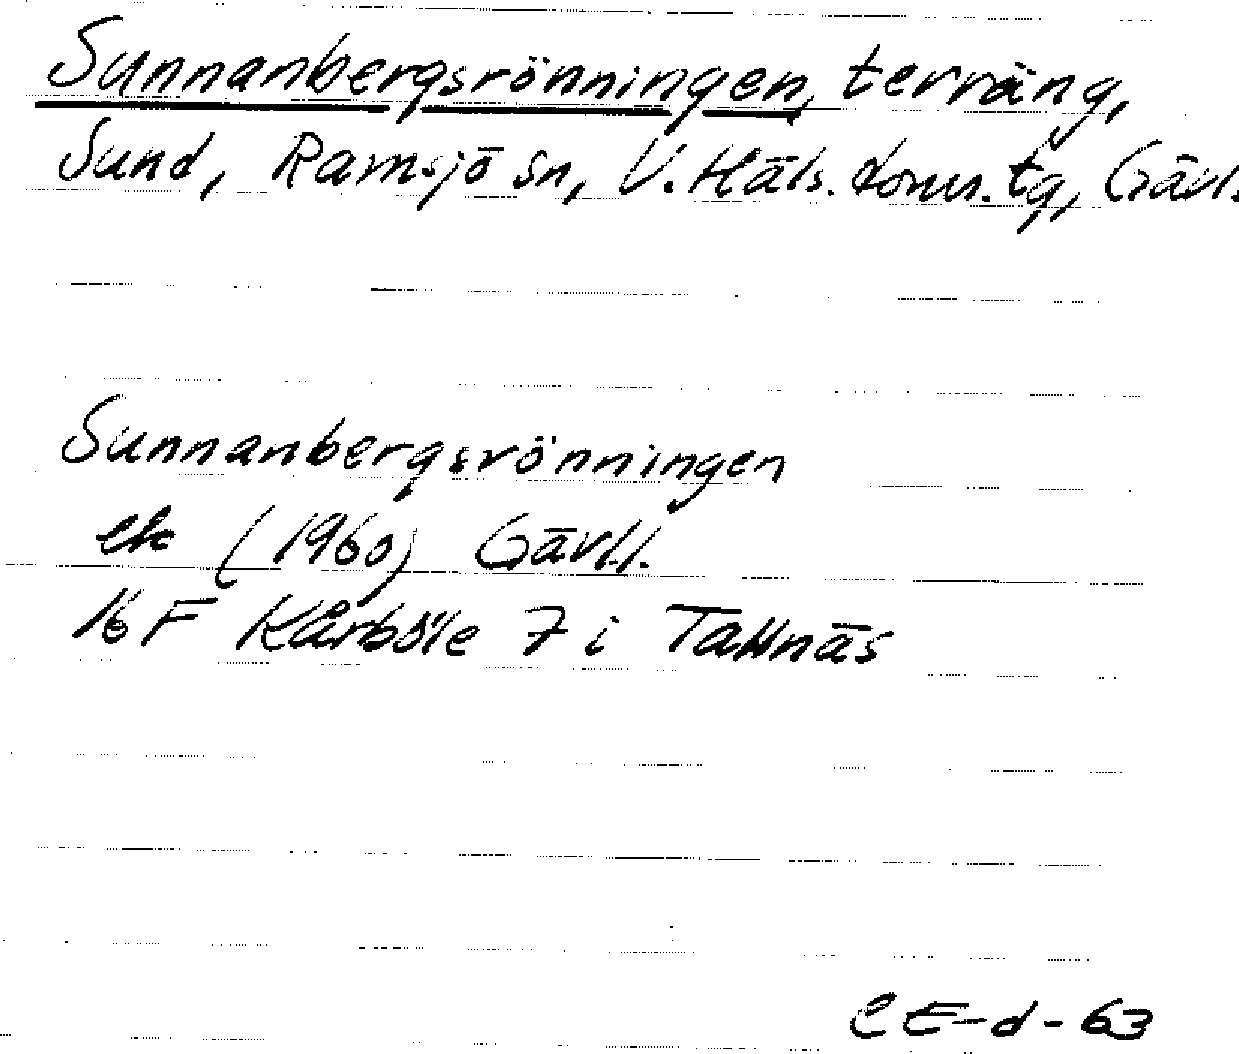 Sunnanbergsrönningen, terräng,
Sund, Ramsjö sn, V. Häls. doms. tg, Gävl.
Sunnanbergsrönningen
ek (1960) Gävl.l.
16 F Kårböle 7 i Tallnäs
CE-d-63